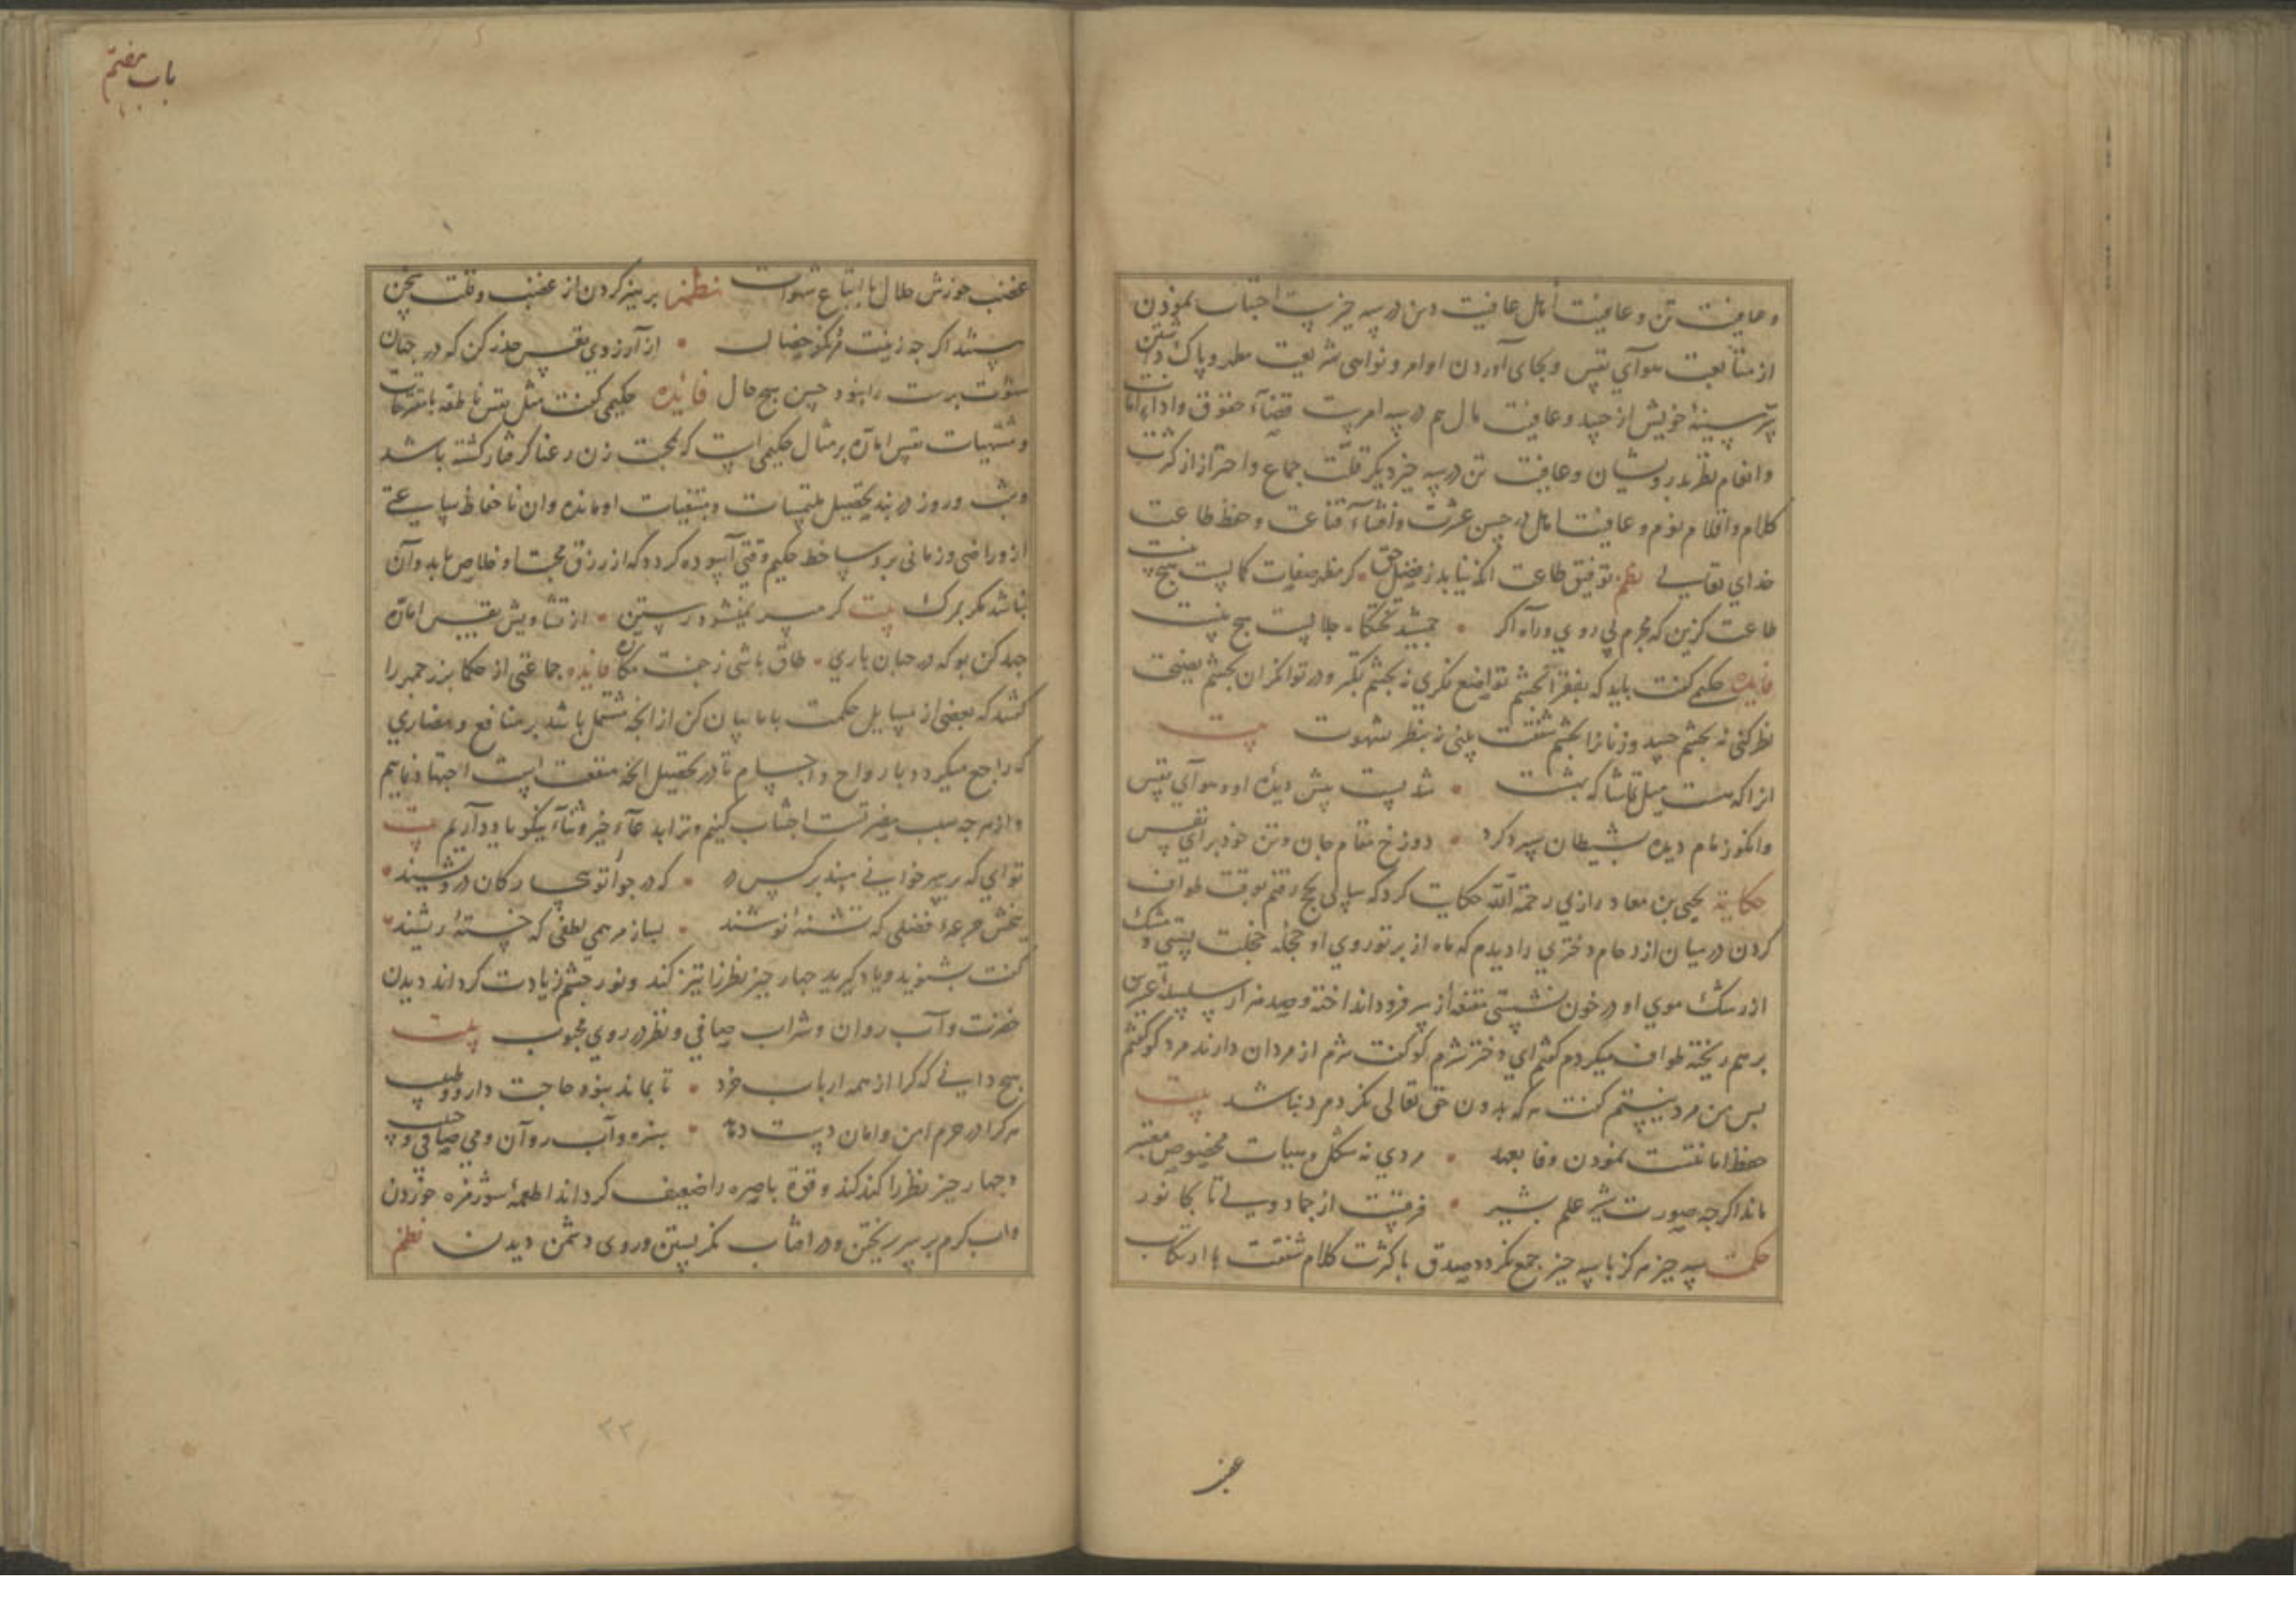 و عافیت تن و عافیت اهل عافیت دین در سه چیزست اجتناب نمودن
از متابعت هوآی نفس و بجای آوردن اوامر و نواهی شریعت مطهر و پاک داشتن
سینهٔ خویش از حسد و عافیت مال هم در سه امرست قضآء حقوق و اداء امانات
و انعام نظر بدرویشان و عافیت تن در سه چیز دیکر قلّت جماع و احتراز از کثرت
کلام و اقلام نوم و عافیت اهل در حسن عشرت و افشآء قناعت و حفظ طاعت
خدای تعالی نظم توفیق طاعت ار نیابد ز فضل حق کر مظهر صفات کمالیست هیچ نیست
طاعت کزین که مجرم بی روی و راه اکر جمشید تختکاه جلالیست هیچ نیست
فایده حکیمی کفت باید که بفقرا بچشم تواضع نکری نه بچشم تکبر و در توانکران بچشم نصیحت
نظر کنی نه بچشم حسد و زنانرا بچشم شفقت بینی نه بنظر شهوت بیت
انرا که هست میل تماشاکه بهشت شد پست پیش دیدهٔ او هوآی نفس
وانکو زمام دیده بشیطان سپرد کرد دوزخ مقام جان و تن خود برای نفس
حکایة یحیی بن معاد رازی رحمة الله حکایت کرد که سالی بحج رفتم بوقت طواف
کردن در میان ازدحام دختری را دیدم که ماه از پرتو روی او حجلهٔ خجلت بستی و مشک
از رشک موی او در خون نشستی مقنعه از سر فرود انداخته و صد هزار سلسلهٔ عنبرین
بر هم ریخته طواف میکرد کفتم ای دختر شرم کو کفت شرم از مردان دارند مرد کو کفتم
پس من مرد نیستم کفت هر که بدون حق تعالی نکرد مرد نباشد بیت
حفظ امانتست نمودن وفا بعهد مردی نه شکل و هیات مخصوص معتبر
ماند اکرجه صورت شیر علم بشیر فرقیست از جماد ولی تا بجانور
حکمت سه چیز هرکز با سه چیز جمع نکردد صدق با کثرت کلام شفقت با ارتکاب
غضب
باب هفتم
غضب خورش حلال با اتباع شهوات نظم پرهیز کردن از غضب و قلت سخن
باشند اکر جه زینت مرد نکو خصال از آرزوی نفس حذر کن که در جهان
شهوت پرست را نبود حسن هیچ حال فائده حکیمی کفت مثل نفس ناطقه با مقترحات
و مشتهیات نفس اماره بر مثال حکیمی است که بمحبت زن رعنا کرفتار کشته باشد
و شب و روز در بند تحصیل ملتمسات و مبتغیات او مانده وان ناحفاظ نه ساعتی
ازو راضی و زمانی برو ساخط حکیم وقتی آسوده کردد که از رزق محبت او خلاص یابد و آن
نباشد مکر بمرک بیت کر میسر نمیشود رستن از تشاویش نفس اماره
جهد کن بو که در جهان باری طاق باشی ز جفت مکاره فایده جماعتی از حکما بزرجمهر را
کفتند که بعضی از مسایل حکمت با ما بیان کن از انجه مشتمل باشد بر منافع و مضاری
که راجع میکردد بارواح و اجسام تا در تحصیل انچه منفعت است اجتهاد نماییم
و از هر جه سبب مضرتست اجتناب کنیم و ترا بدعآء خیر و ثنآء نیکو یاد آریم بیت
تو ای که بر سر خوانی نه سزد بر کس در که در جوار تو بیچارکان درویشند
ببخش جرعهٔ فضلی که تشنهٔ نوشند بساز مرهم لطفی که خستهٔ ریشند
کفت بشنوید و یاد کیرید چهار چیز نظر را تیز کند و نور چشم زیادت کرداند دیدن
خضرت و آب روان و شراب صافی و نظر در روی محبوب بیت
هیچ دانی که کرا از همه ارباب خرد تا بماند نبود حاجت دارو و طبیب
هر کرا در حرم امن و امان دست دهد سبزه و آب روان و می صافی و حبیب
و چهار چیز نظر را کند کند و قوة باصره را ضعیف کرداند اطعمهٔ شور مزه خوردن
و اب کرم بر سر ریختن و در افتاب نکریستن و روی دشمن دیدن نظم
۲۲